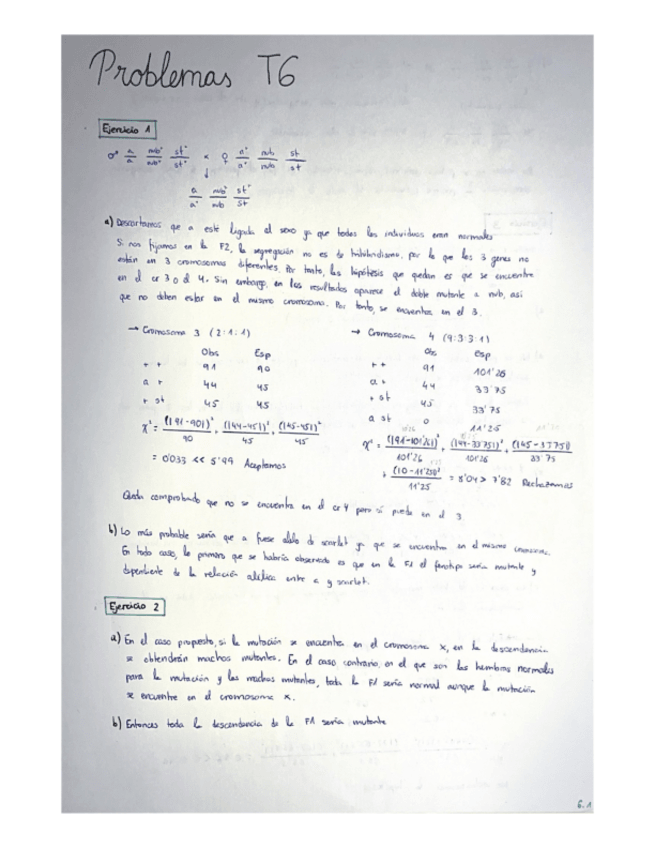 Problemas T6
Ejercicio 1
♂ a/a nub⁺/nub⁺ st⁺/st⁺ × ♀ a⁺/a⁺ nub/nub st/st
↓
a/a⁺ nub⁺/nub st⁺/st
a) Descartamos que a esté ligada al sexo ya que todos los individuos eran normales
Si nos fijamos en la F2, la segregación no es de trihibridismo, por lo que los 3 genes no
están en 3 cromosomas diferentes. Por tanto, las hipótesis que quedan es que se encuentre
en el cr 3 o el 4. Sin embargo, en los resultados aparece el doble mutante a nub, así
que no deben estar en el mismo cromosoma. Por tanto, se encuentra en el 3.
→ Cromosoma 3 (2:1:1)
Obs Esp
+ + 91 90
a + 44 45
+ st 45 45
χ² = (|91-90|)²/90 + (|44-45|)²/45 + (|45-45|)²/45
= 0'033 << 5'99 Aceptamos
→ Cromosoma 4 (9:3:3:1)
Obs Esp
+ + 91 101'26
a + 44 33'75
+ st 45 33'75
a st 0 11'25
χ² = (|91-101'26|)²/101'26 + (|44-33'75|)²/101'26 + (|45-33'75|)/33'75
+ (|0-11'25|)²/11'25 = 8'04 > 7'82 Rechazamos
Queda comprobado que no se encuentra en el cr 4 pero sí puede en el 3
b) Lo más probable sería que a fuese alelo de scarlet ya que se encuentra en el mismo cromosoma.
En todo caso, lo primero que se habría observado es que en la F1 el fenotipo sería mutante y
dependiente de la relación alélica entre a y scarlet.
Ejercicio 2
a) En el caso propuesto, si la mutación se encuentra en el cromosoma X, en la descendencia
se obtendrán machos mutantes. En el caso contrario, en el que son las hembras normales
para la mutación y los machos mutantes, toda la F1 sería normal aunque la mutación
se encuentre en el cromosoma X.
b) Entonces toda la descendencia de la F1 sería mutante
6.1